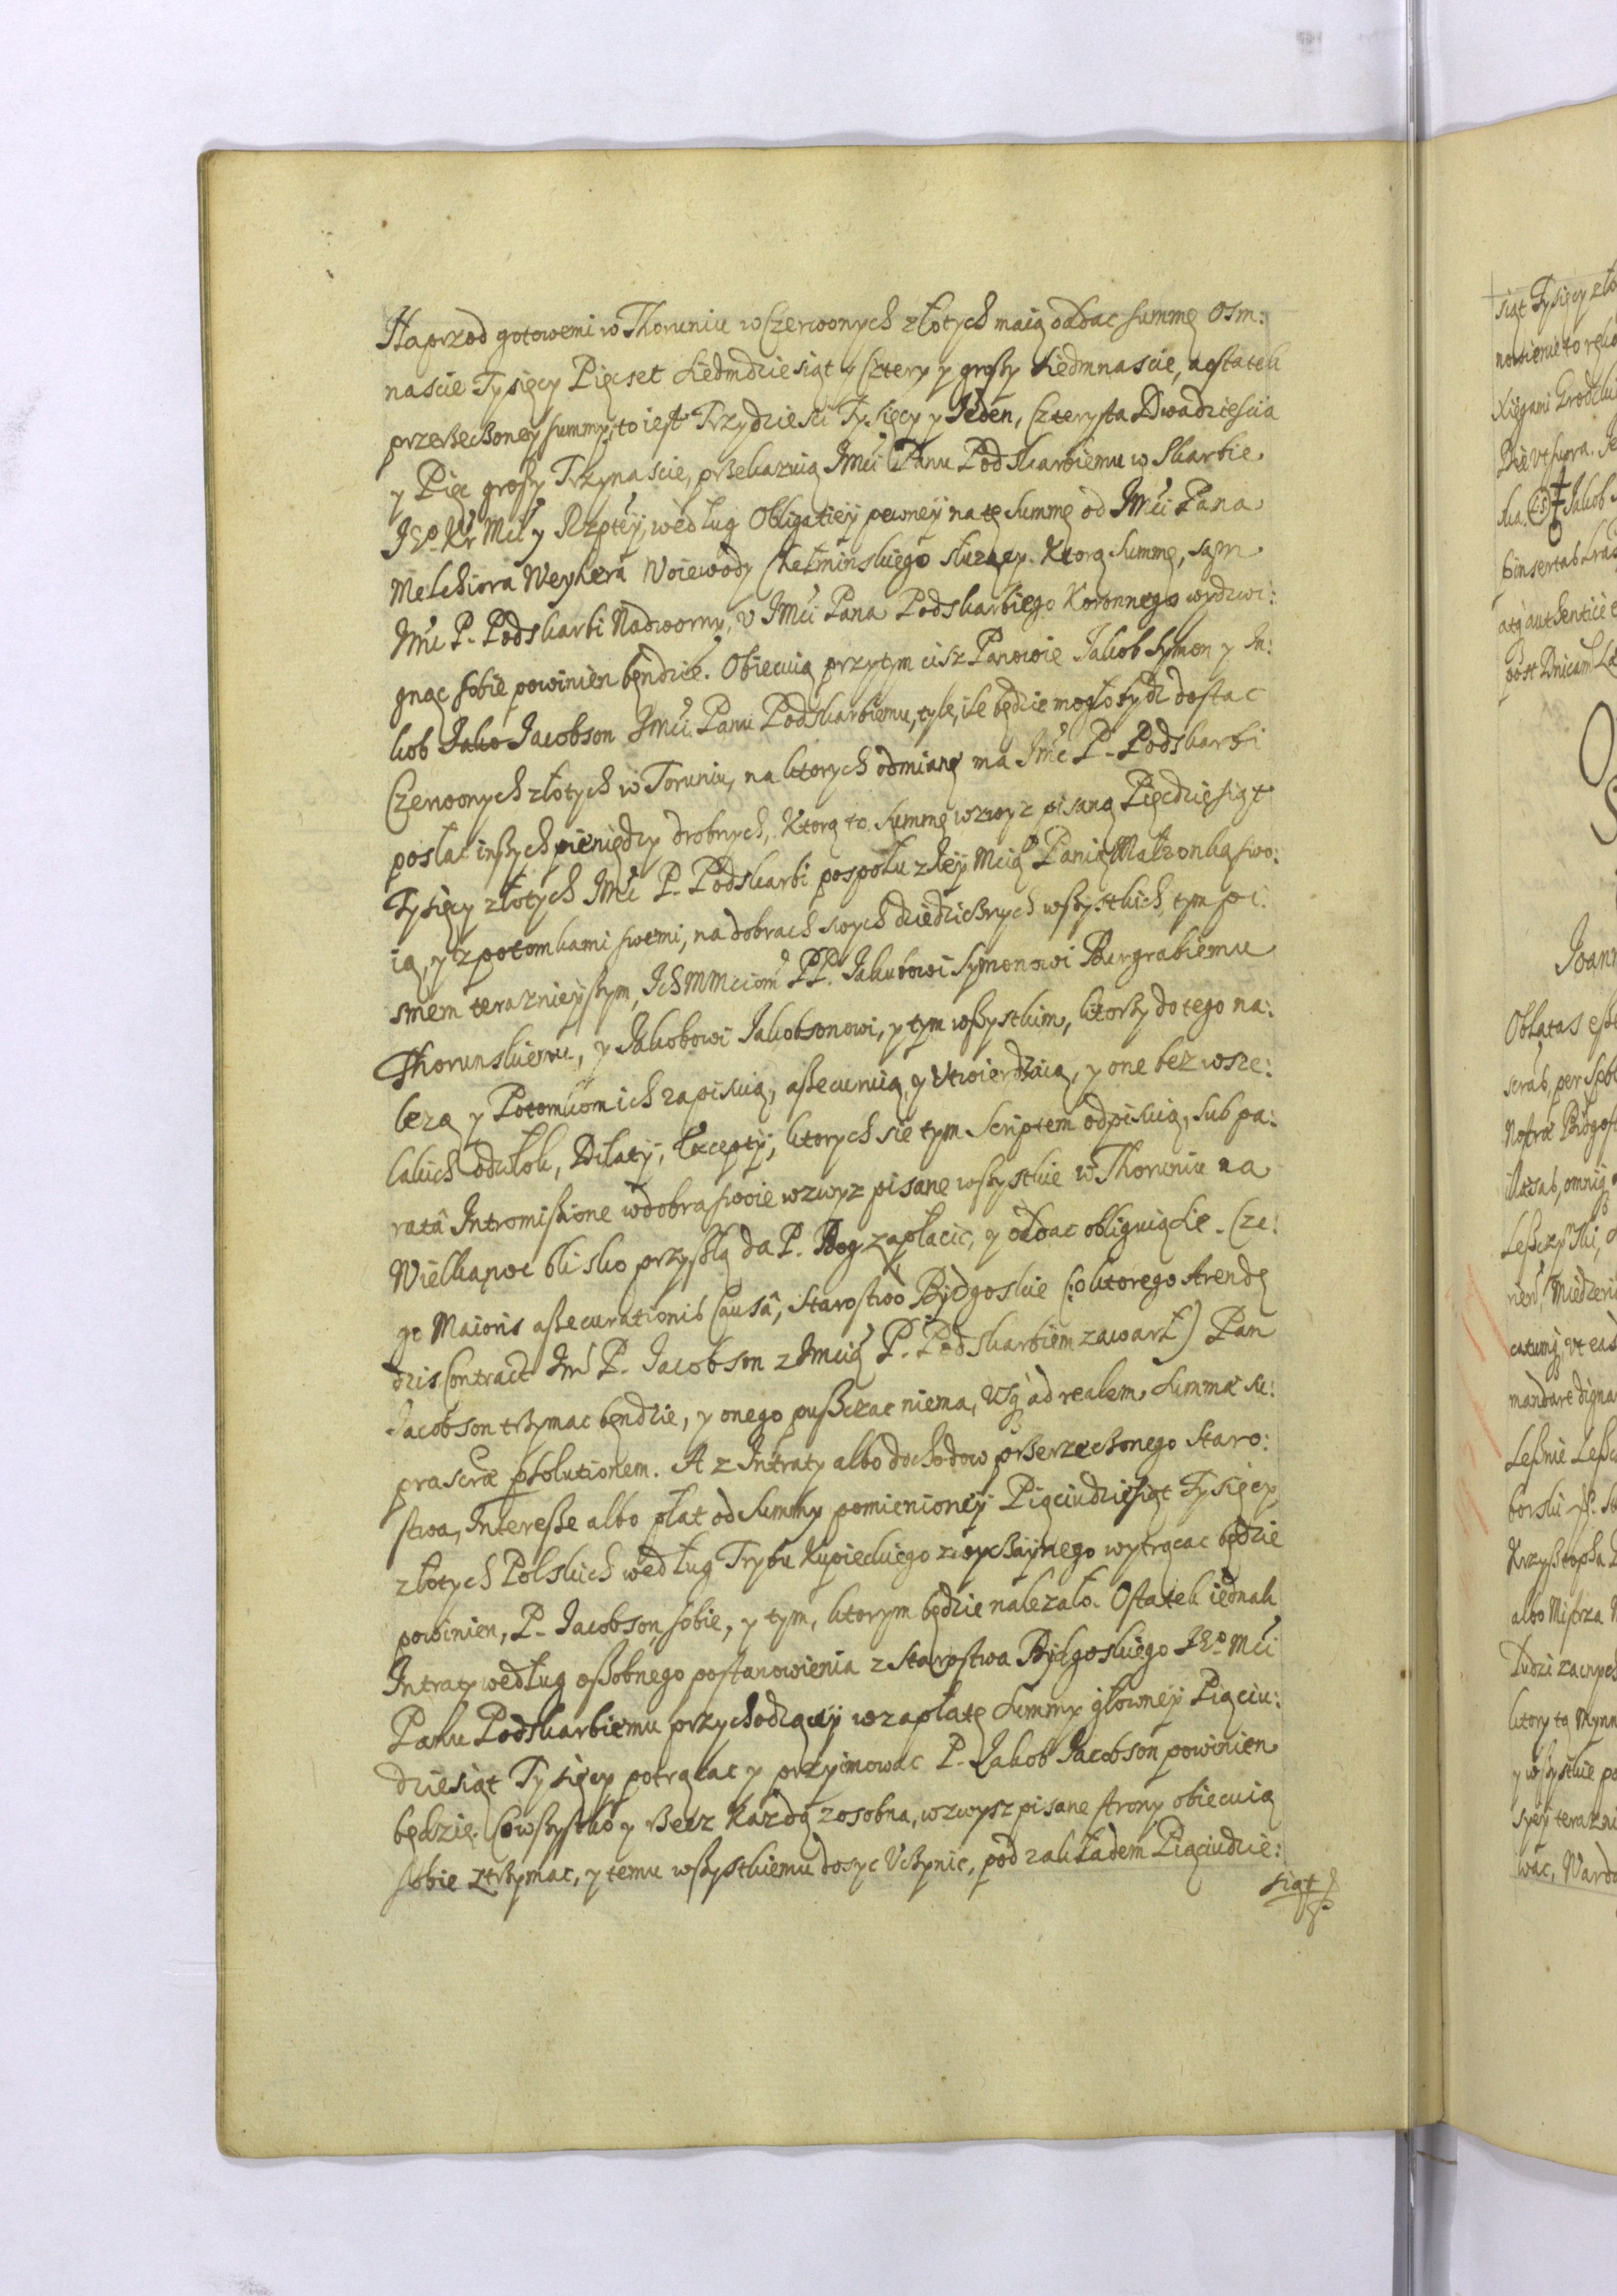 Naprzod gotowemi w Thoruniu w Czerwonych złotych maią oddac summę Osm:
nascie Tysięcy Pięcset siedmdziesiąt y Cztery y groszy siedmnascie, a ostatek
przerzeczoney summy, to iest Trzydziesci Tysięcy y Ieden, Czterysta Dwadziescia
y Pięc groszy Trzynascie, przekazuią Jmci Panu Podskarbiemu w Skarbie
JEo Kr Mci y Rzptey, według Obligatiey pewney na tę summę od Jmci Pana
Melchiora Weyhera Woiewody Chełminskiego słuzący. Ktorą summę, sąm
Jmc P. Podskarbi Nadworny, v Jmci Pana Podskarbiego Koronnego wydzwi:
gnąc sobie powinien będzie. Obiecuią przytym cisz Panowie Iakob Symon y Ia:
kob Iako Iacobson Jmci Panu Podskarbiemu, tyle, ile będzie mogło bydz dostac
Czerwonych złotych w Toruniu, na ktorych odmianę ma Jmc P. Podskarbi
posłac inszych pieniędzy drobnych, Ktorą to summę wzwyz pisaną Pięcdziesiąt
Tysięcy złotych Jmc P. Podskarbi pospołu z Jey Mcią Panią Małzonką swo:
ią, y z potomkami swemi, na dobrach swych dziedzicznych wszystkich, tym pi:
smem teraznieyszym, Ich MMciom PP. Iakubowi Symonowi Burgrabiemu
Thorunskiemu, y Iakobowi Iakobsonowi, y tym wszystkim, ktorzy do tego na:
lezą y Potomkom ich zapisuią, assecuruią, y Vtwierdzaią, y one bez wsze:
lakich odwłok, Dilatÿ, Exceptÿ, ktorych sie tym Scriptem odpisuią, sub pa:
ratâ Intromissione w dobra swoie wzwyz pisane wszystkie w Thoruniu na
Wielkąnoc blisko przyszłą da P. Bog zapłacic, y oddac obliguią sie. Cze:
go Maioris assecurationis Causâ, Starostwo Bydgoskie (: o ktorego Arendę
dzis Contract Jmc P. Iacobson z Jmcią P. Podskarbiem zawarł) Pan
Iacobson trzymac będzie, y onego puszczac niema, Vsq ad realem summæ su:
prascræ psolutionem. A z Intraty albo dochodow przerzeczonego Staro:
stwa, Interesse albo płat od summy pomienioney Pięciudziesiąt Tysięcy
złotych Polskich według Trybu Kupieckiego zwyczaynego wytrącac będzie
powinien, P. Iacobson, sobie, y tym, ktorym będzie nalezało. Ostatek iednak
Intraty według osobnego postanowienia z Starostwa Bydgoskiego JEo Mci
Panu Podskarbiemu przychodzącey w zapłatę summy głowney Pięciu:
dziesiąt Tysięcy potrącac y przyimowac P. Iakob Iacobson powinien
będzie. Co wszystko y rzecz kazdą zosobna, wzwysz pisane strony obiecuią
sobie ztrzymac, y temu wszystkiemu dosyc Vczynic, pod zakładem Pięciudzie:
siąt